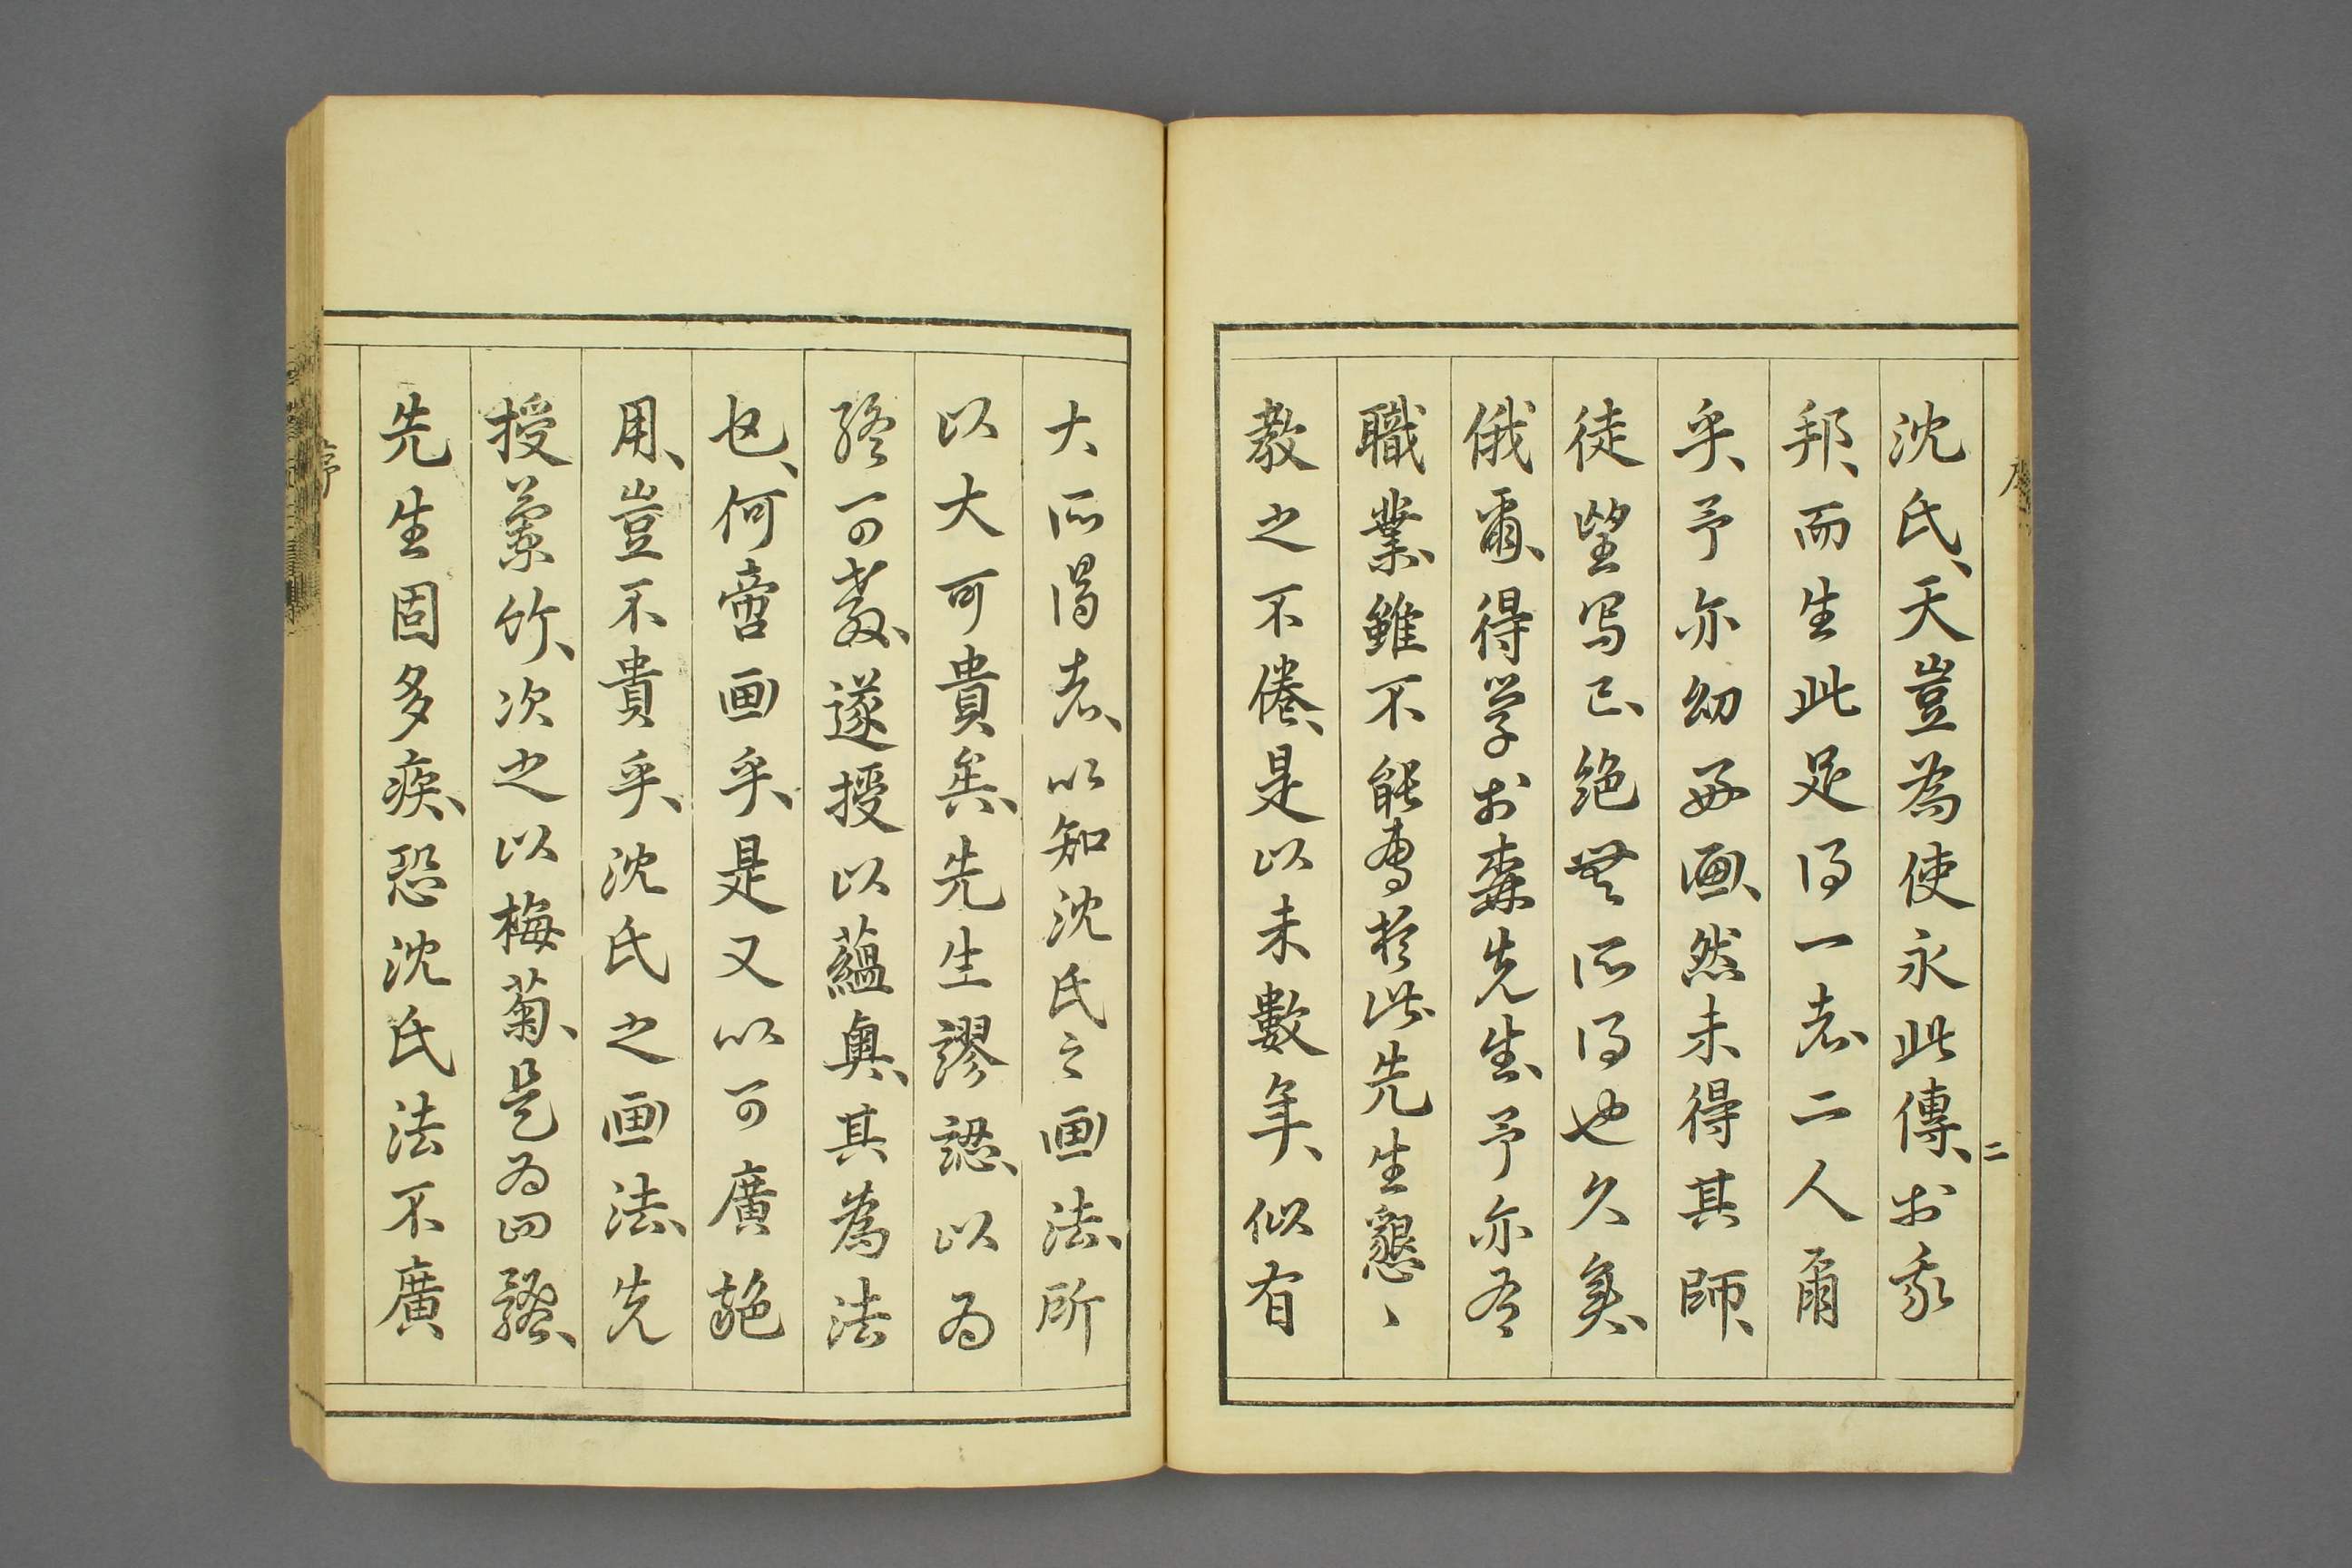 沈氏、天豈為使永此傳、於我
邦、而生此足得一者、二人爾
乎、予亦幼好画、然未得其師、
徒望写已、絶無所得也久矣、
俄爾、得学於森先生、予亦有
職業、雖不能專於此、先生懇、、
教之不倦、是以未數年、似有
大所得者、以知沈氏之画法、所
以大可貴矣、先生謬認、以為
終可教、遂授以蘊奥、其為法
也、何啻画乎、是又以可廣諸
用、豈不貴乎、沈氏之画法、先
授蘭竹、次之以梅菊、是為四
先生固多疾、恐沈氏法不廣
序
二